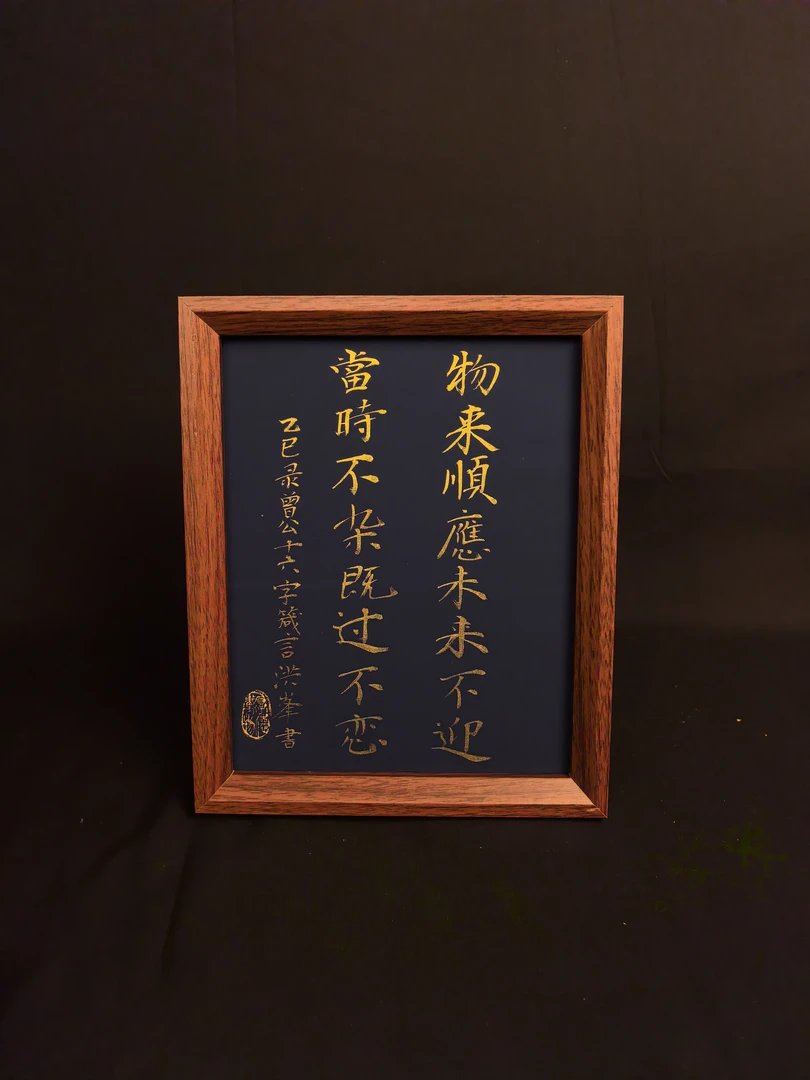 物来順應未来不迎
當時不杂既过不恋
乙巳录曾公十六字箴言洪峯書